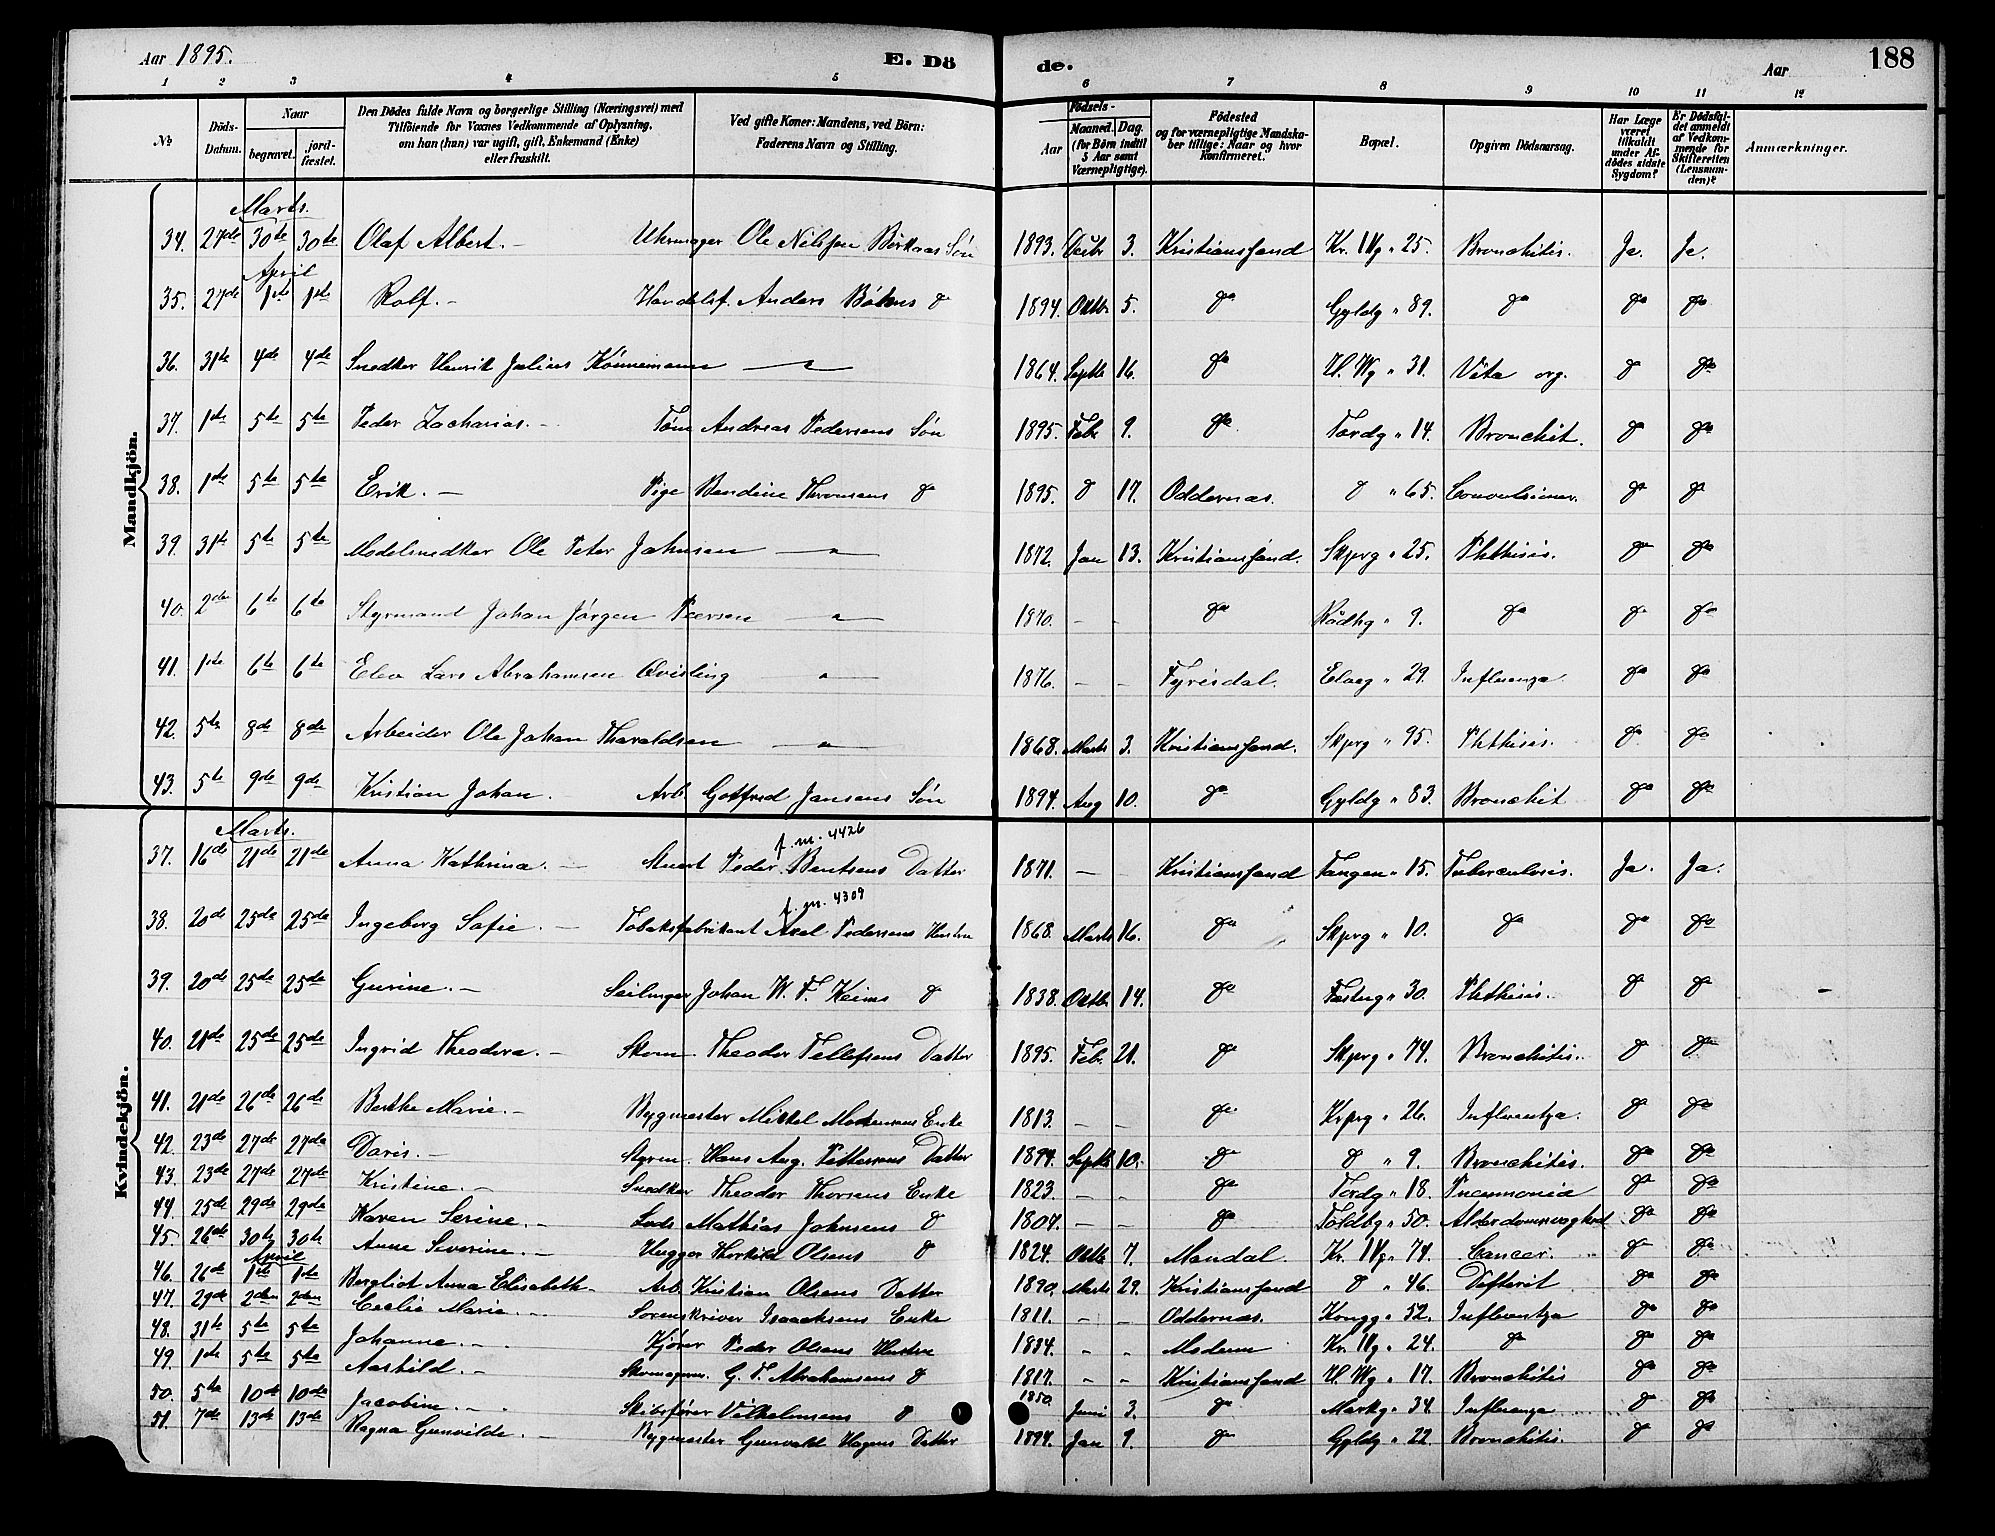 Aar 1895.
E. Dö
de.
Aar
188
1 2 3 4 5 6 7 8 9 10 11 12
No
Döds-Datum.
Naar
begravet.
jordfæstet.
Den Dödes fulde Navn og borgerlige Stilling (Næringsvei) med Tilföiende for Voxnes Vedkommende af Oplysning, om han (hun) var ugift, gift, Enkemand (Enke) eller fraskilt.
Ved gifte Koner: Mandens, ved Börn: Faderens Navn og Stilling.
Födsels-
Aar
Maaned. Dag.
(for Börn indtil 5 Aar samt Værnepligtige).
Födested
og for værnepligtige Mandskaber tillige: Naar og hvor Konfirmeret.
Bopæl.
Opgiven Dödsaarsag.
Har Læge været tilkaldt under Afdödes sidste Sygdom?
Er Dödsfaldet anmeldt af Vedkommende for Skifteretten (Lensmanden)?
Anmærkninger.
Mandkjön.
Marts.
34. 27de 30te 30te Olaf Albert. – Uhrmager Ole Nilssen Birknæs Søn 1893. Decbr 3. Kristianssand Kr. IVg " 25. Bronchitis. Ja. Ja.
April
35. 27de 1ste 1ste Rolf. – Handelsf. Anders Bøhns do 1894. Oktb. 5. do Gyldg " 89. do do do
36. 31te 4de 4de Snedker Henrik Julius Könnemann – " – 1864. Septb 16. do H. Wg " 31. Vita org. do do
37. 1ste 5te 5te Peder Zacharias. – Tøm Andreas Pedersens Søn 1895. Feb. 9. do Tordg " 14. Bronchit. do do
38. 1ste 5te 5te Erik. – Pige Bendine Thronsens do 1895. do 17. Oddernæs. do " 65. Convulsioner. do do
39. 31te 5te 5te Modelsnedker Ole Peter Johnsen – " – 1872. Jan 13. Kristianssand. Skprg " 25. Phthisis. do do
40. 2den 6te 6te Styrmand Johan Jørgen Peersen – " – 1870. – – do Rådhg " 9. do do do
41. 1ste 6te 6te Elev Lars Abrahamsen Qvisling " – 1876. – – Fyrisdal. Elveg " 29. Influenza. do do
42. 5te 8de 8de Arbeider Ole Johan Tharaldsen – " – 1868. Marts 3. Kristianssand. Skprg " 95. Phthisis. do do
43. 5te 9de 9de Kristian Johan. Arb. Gotfred Jansens Søn 1894. Aug 10. do Gyldg " 83. Bronchit do do
Kvindekjön.
Marts.
f. m. 4426
37. 16de 21de 21de Anna Kathrina. – Stuert Peder Bentsens Datter 1871. – – Kristianssand Tangen " 15. Tuberculosis. Ja. Ja.
f. m. 4309
38. 20de 25de 25de Ingeborg Sofie. – Tobaksfabrikant Axel Pedersens Hustru 1868. Marts 16. do Skprg " 10. do do do
39. 20de 25de 25de Gurine. – Seilmager Johan W. F. Keims do 1838. Oktb. 14. do Fæstng " 30. Phthisis. do do –
40. 21de 25de 25de Ingrid Theodora. – Skom. Theodor Tellefsens Datter 1895. Feb. 21. do Skprg " 74. Bronchitis. do do
41. 21de 26de 26de Berthe Marie. – Bygmester Mikkel Mortensens Enke 1813. – – do Kvprg " 26. Influentza. do do
42. 23de 27de 27de Doris. – Styrm. Hans Aug. Pettersens Datter 1894. Septb 10. do do " 9. Bronchitis. do do
43. 23de 27de 27de Kristine. – Snedker Theodor Thorsens Enke 1823. – – do Tordg " 18. Pneumonia do do
44. 25de 29de 29de Karen Serine. – Lods Mathias Johnsens do 1807. – – do Toldbg " 50. Alderdomssvaghed do do
45. 26de 30te 30te Anne Severine. – Hugger Therkild Olsens do 1824. Oktb. 7. Mandal. Kr. IVg " 74. Cancer. do do
April
46. 26de 1ste 1ste Bergliot Anna Elisabeth – Arb. Kristian Olsens Datter 1890. Marts 29. Kristianssand do " 46. Difterit do do
47. 29de 2den 2den Cecilie Marie. – Sorenskriver Isaachsens Enke 1811. – – Oddernæs. Kongg " 52. Influentza do do
48. 31te 5te 5te Johanne. – Kjører Peder Olsens Hustru 1834. " " Modum Kr. IVg " 24. do do do
49. 1ste 5te 5te Aashild. – Skomagerm. G. T. Abrahamsens do 1817. " – Kristianssand H. Wg " 17. Bronchitis do do
50. 5te 10de 10de Jacobine. – Skibsfører Vilhelmsens do 1850. Juni 3. do Markg " 34. Influenza do do
51. 7de 13de 13de Ragna Gunvilde. – Bygmester Gunvald Hagens Datter 1894. Jan 9. do Gyldg " 22. Bronchitis. do do